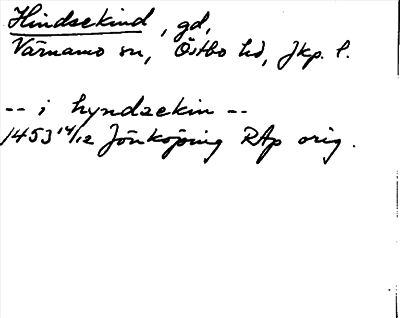 Hindsekind, gd,
Värnamo sn, Östbo hd, Jkp. l.
-- i hyndzekin --
1453 14/12 Jönköping RAp orig.